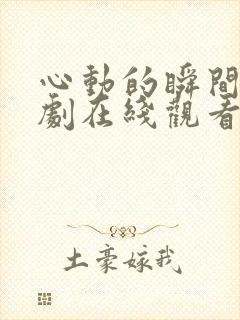 心動的瞬間
劇在綫觀看
土豪嫁我